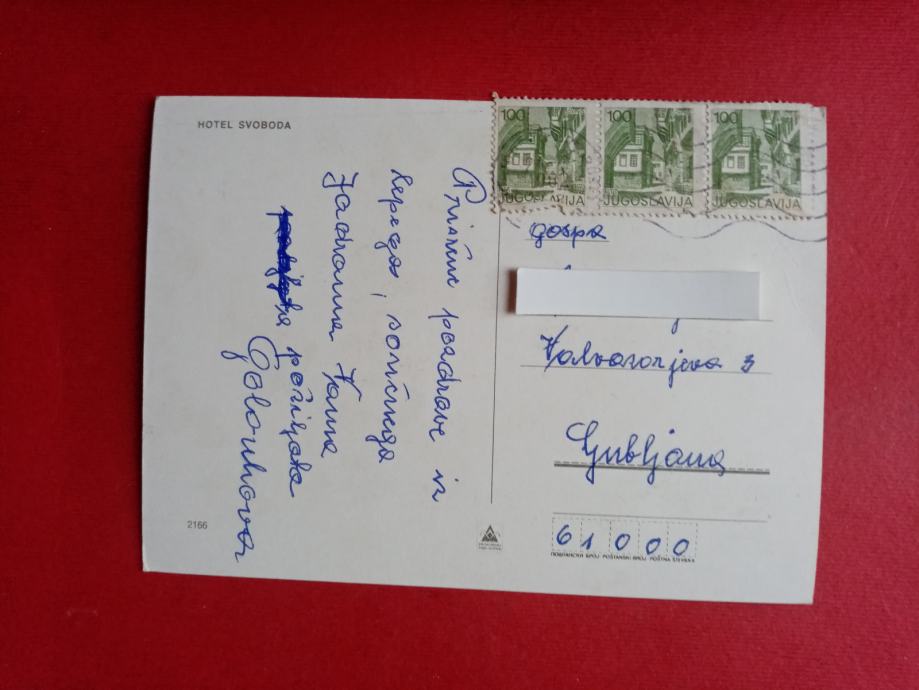 HOTEL SVOBODA
Prisrčne pozdrave iz
lepega, sončnega
Jadrana Vama
pošiljata
Golouhova
2166
100 100 100
JUGOSLAVIJA JUGOSLAVIJA JUGOSLAVIJA
gospa
Valvasorjeva 3
Ljubljana
61000
ПОШТАНСКИ БРОЈ POŠTANSKI BROJ POŠTNA ŠTEVILKA